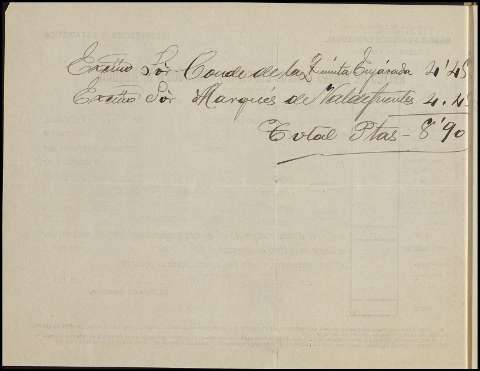 Excmo Sôr Conde de la Quinta Enjarada 4'45
Excmo Sôr Marqués de Valdefuentes 4.45
Total Ptas - 8'90